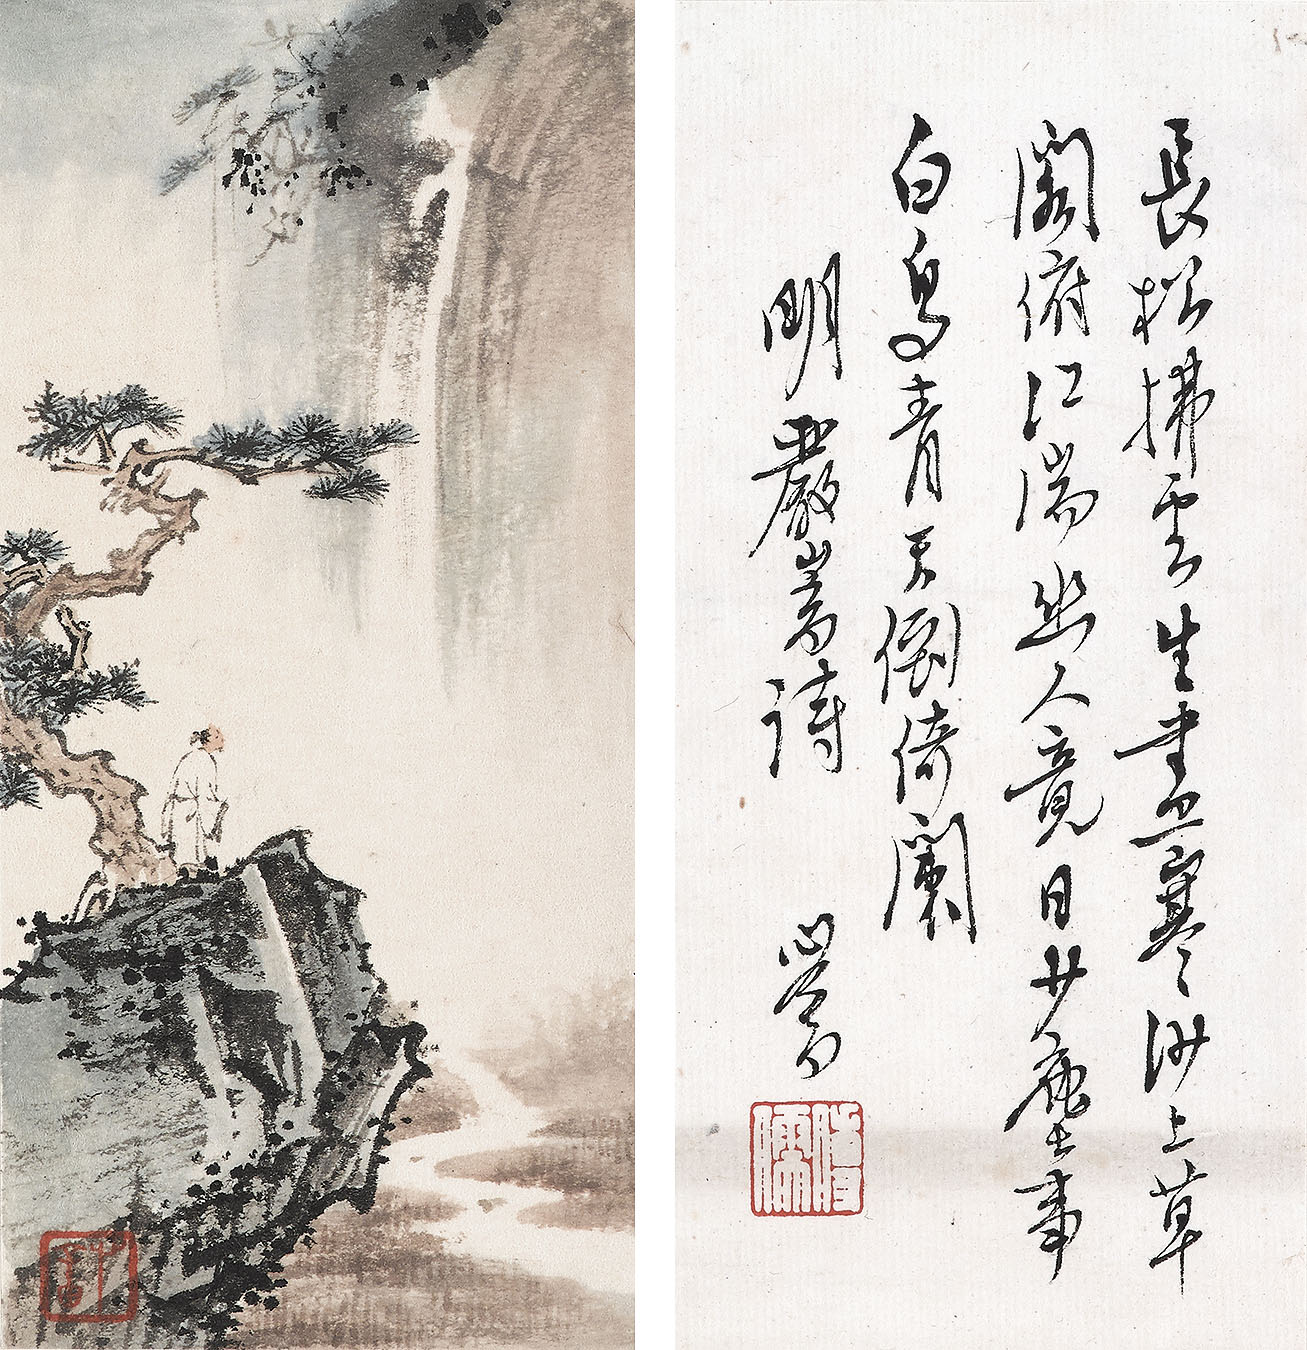 長松拂雲生晝寒沙上草
閣俯江湍幽人竟日少塵事
白鳥青天倒倚闌
明嚴嵩詩 心畬
溥儒